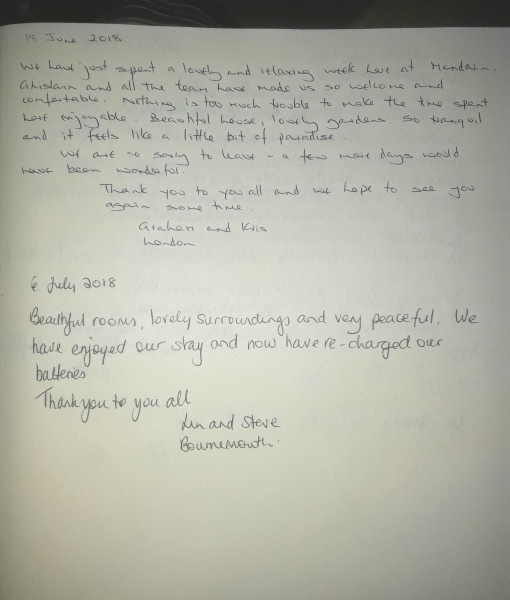 18 June 2018
We have just spent a lovely and relaxing week here at Mandarin.
Ghislain and all the team have made us so welcome and
comfortable. Nothing is too much trouble to make the time spent
here enjoyable. Beautiful house, lovely gardens. So tranquil
and it feels like a little bit of paradise.
We are so sorry to leave - a few more days would
have been wonderful.
Thank you to you all and we hope to see you
again some time.
Graham and Kris
London
6 July 2018
Beautiful rooms, lovely surroundings and very peaceful. We
have enjoyed our stay and now have re-charged our
batteries
Thank you to you all
Lin and Steve
Bournemouth.